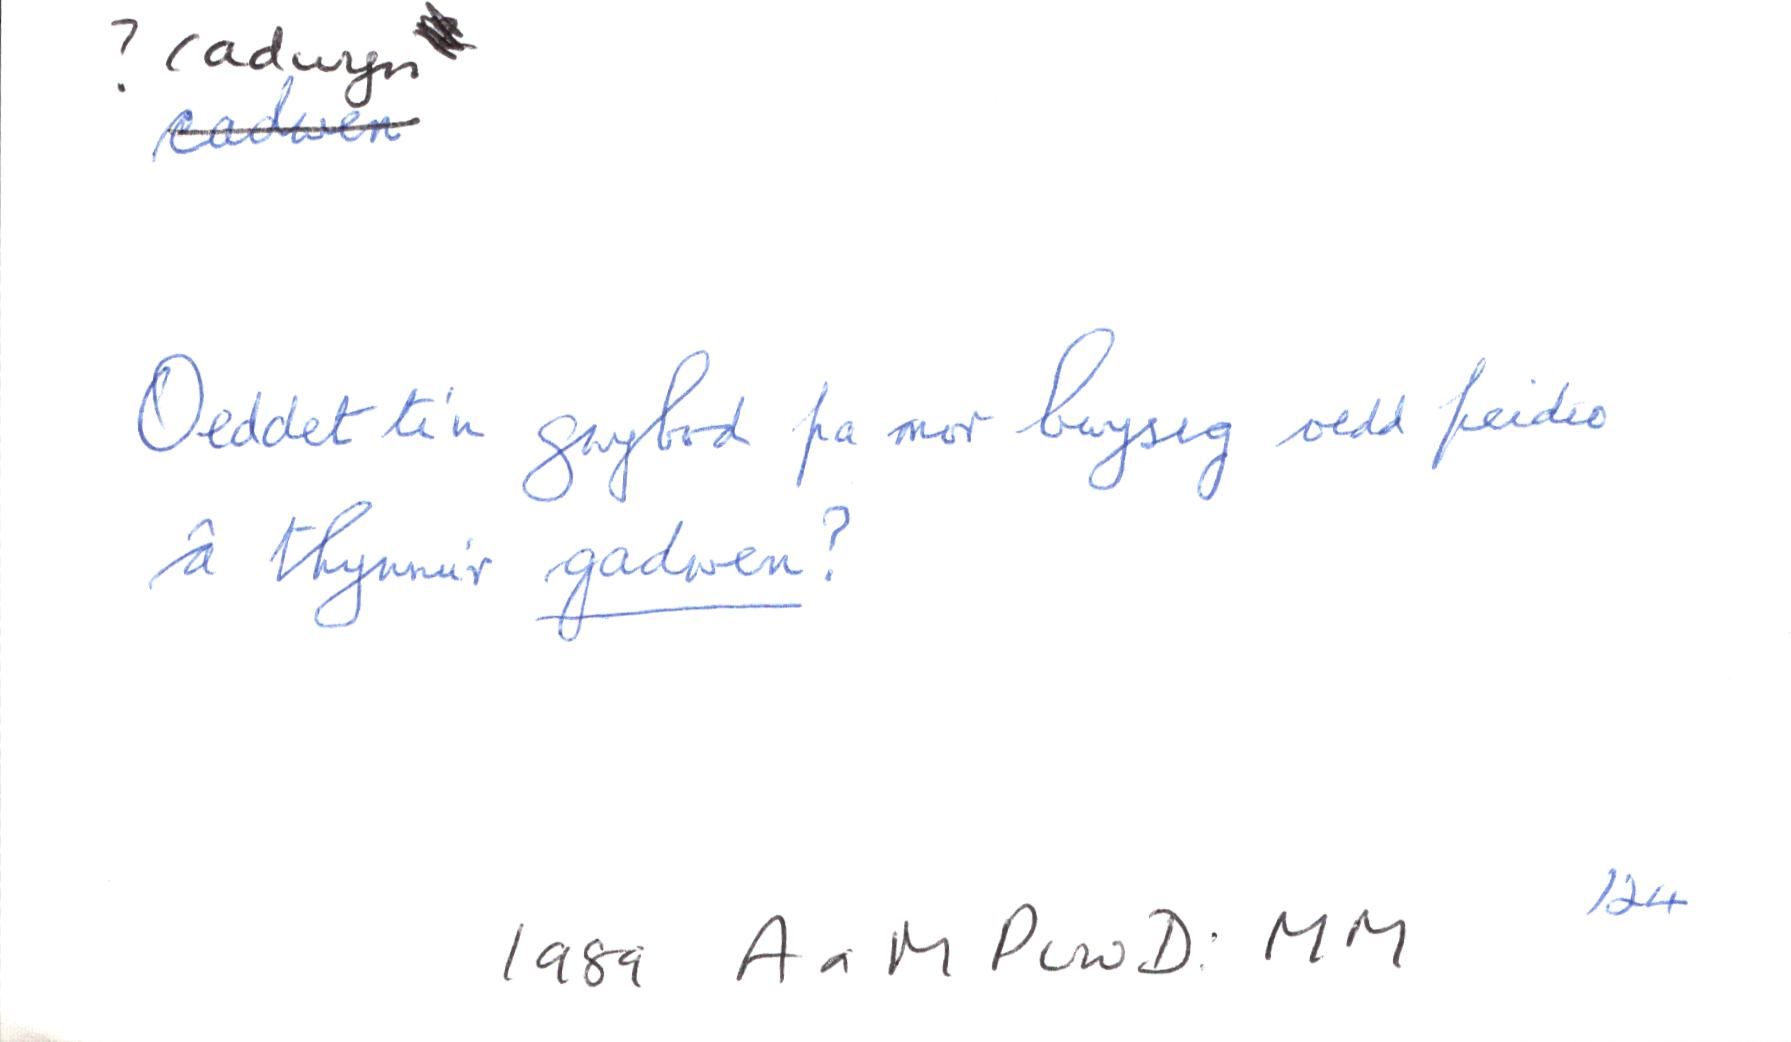 ? cadwyn
cadwen
Oeddet ti'n gwybod pa mor bwysig oedd peidio
â thynnu'r gadwen?
124
1989 A a M Pww D: MM